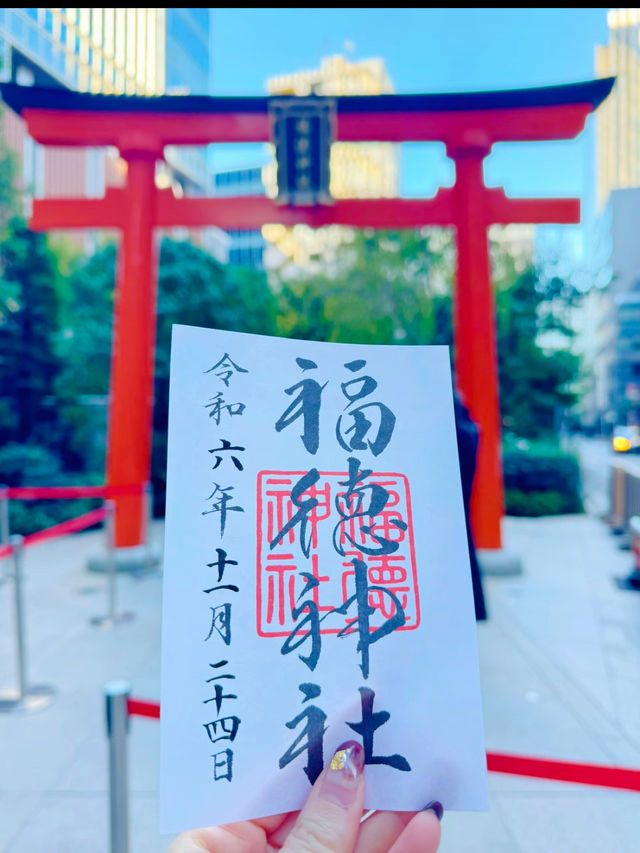 福徳神社
福德
神社
令和六年十一月二十四日